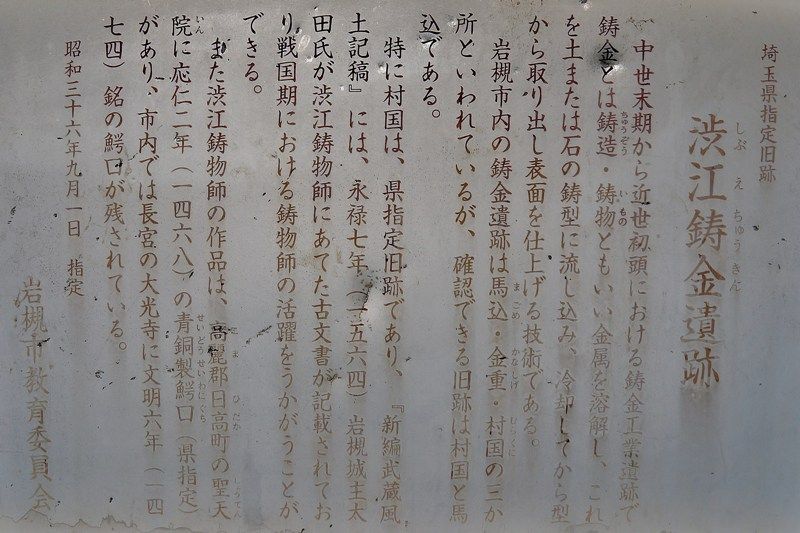 埼玉県指定旧跡
渋江鋳金遺跡
しぶえちゅうきん
中世末期から近世初頭における鋳金工業遺跡で
鋳金とは鋳造・鋳物ともいい金属を溶解し、これ
ちゅうぞう いもの
を土または石の鋳型に流し込み、冷却してから型
から取り出し表面を仕上げる技術である。
岩槻市内の鋳金遺跡は馬込・金重・村国の三か
まごめ かなしげ むらくに
所といわれているが、確認できる旧跡は村国と馬
込である。
特に村国は、県指定旧跡であり、『新編武蔵風
土記稿』には、永禄七年（一五六四）岩槻城主太
田氏が渋江鋳物師にあてた古文書が記載されてお
り戦国期における鋳物師の活躍をうかがうことが
できる。
また渋江鋳物師の作品は、高麗郡日高町の聖天
こま ひだか しょうてん
院に応仁二年（一四六八）の青銅製鰐口（県指定）
いん せいどうせいわにぐち
があり、市内では長宮の大光寺に文明六年（一四
七四）銘の鰐口が残されている。
昭和三十六年九月一日 指定
岩槻市教育委員会